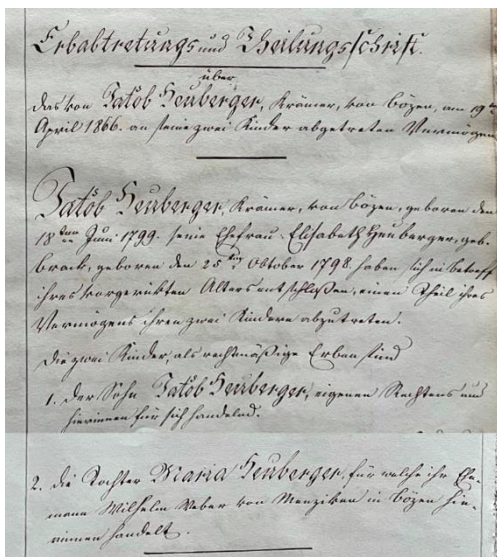 Erbabtretungs und Theilungsschrift.
über
das von Jakob Heuberger, Krämer, von Bözen, am 19.
April 1866. an seine zwei Kinder abgetreten Vermögen
Jakob Heuberger, Krämer, von Bözen, geboren den
18ten Juni 1799. seine Ehefrau Elisabeth Heuberger, geb.
Brack, geboren den 25ten Oktober 1798. haben sich in betreff
ihres vorgerückten Alters entschlossen, einen Theil ihres
Vermögens ihren zwei Kindern abzutreten.
Die zwei Kinder, als rechtmäßige Erben sind
1. der Sohn Jakob Heuberger, eigenen Rechtens und
hierinnen für sich handelnd.
2. die Tochter Maria Heuberger, für welche ihr Ehe-
mann Wilhelm Weber von Menziken in Bözen hie-
rinnen handelt.